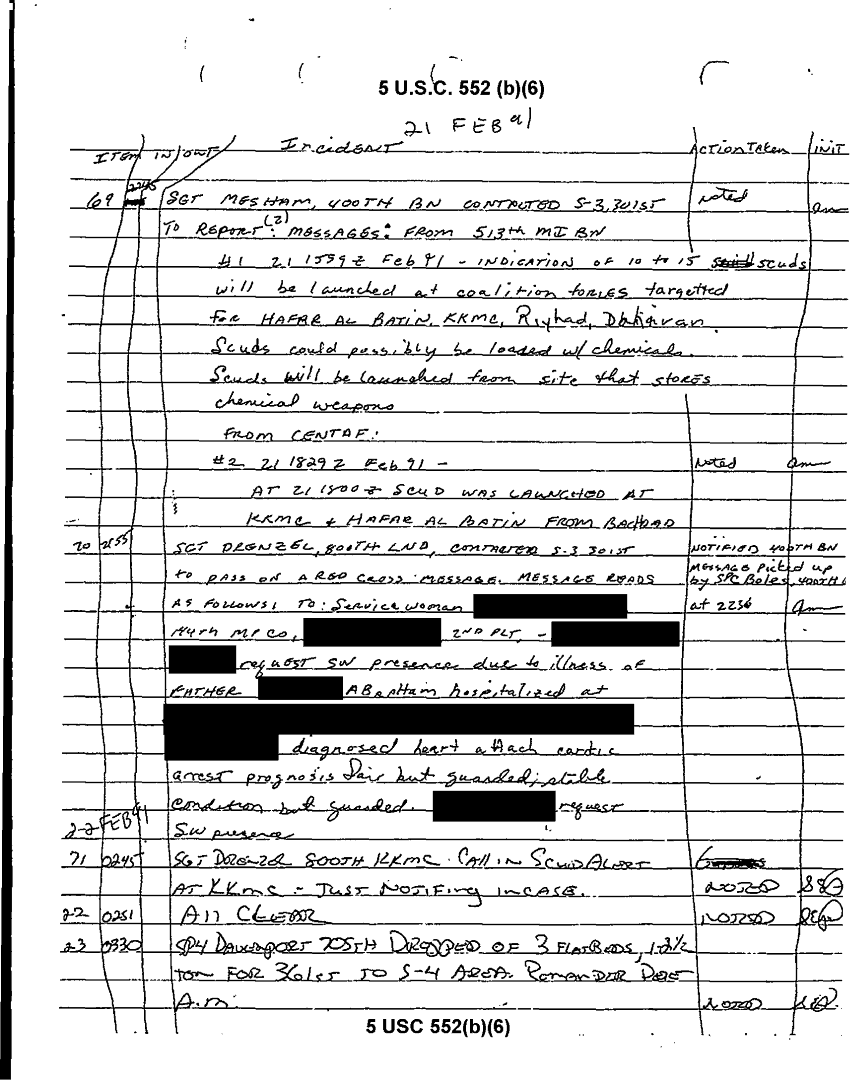 5 U.S.C. 552 (b)(6)
21 FEB 91
ITEM IN/OUT Incident Action Taken INIT
69 2245 SGT MESHAM, 400TH BN CONTACTED S-3, 301ST noted am
TO REPORT (2) MESSAGES: FROM 513th MI BN
#1 21 1559 Z Feb 91 - INDICATION OF 10 to 15 scuds
will be launched at coalition forces targetted
for HAFAR AL BATIN, KKMC, Riyhad, Dhahran.
Scuds could possibly be loaded w/ chemicals.
Scuds will be launched from site that stores
chemical weapons
FROM CENTAF:
#2 21 1829 Z Feb 91 - Noted am
AT 21 1800 Z SCUD WAS LAUNCHED AT
KKMC & HAFAR AL BATIN FROM BAGHDAD
70 2155 SGT DRENZEL, 800TH LNO, CONTACTED S-3 301ST NOTIFIED 400TH BN
to pass on a RED CROSS MESSAGE. MESSAGE READS MESSAGE picked up by SPC Boles, 400TH
AS FOLLOWS: TO: Service woman at 2236 am
MP CO, 2ND PLT, -
request SW presence due to illness of
FATHER ABRAHAM hospitalized at
diagnosed heart attach cardic
arrest prognosis fair but guarded; stable
condition but guarded. request
SW presence
22 FEB 91
71 0245 SGT 800TH KKMC. Call in SCUD ALERT
AT KKMC - JUST NOTIFING INCASE. NOTED
22 0251 All CLEAR NOTED
23 0330 SP4 DAVENPORT 705TH DROPPED OF 3 FLATBEDS, 1-2½
TON FOR 361ST TO S-4 AREA.
A.M. NOTED
5 USC 552(b)(6)